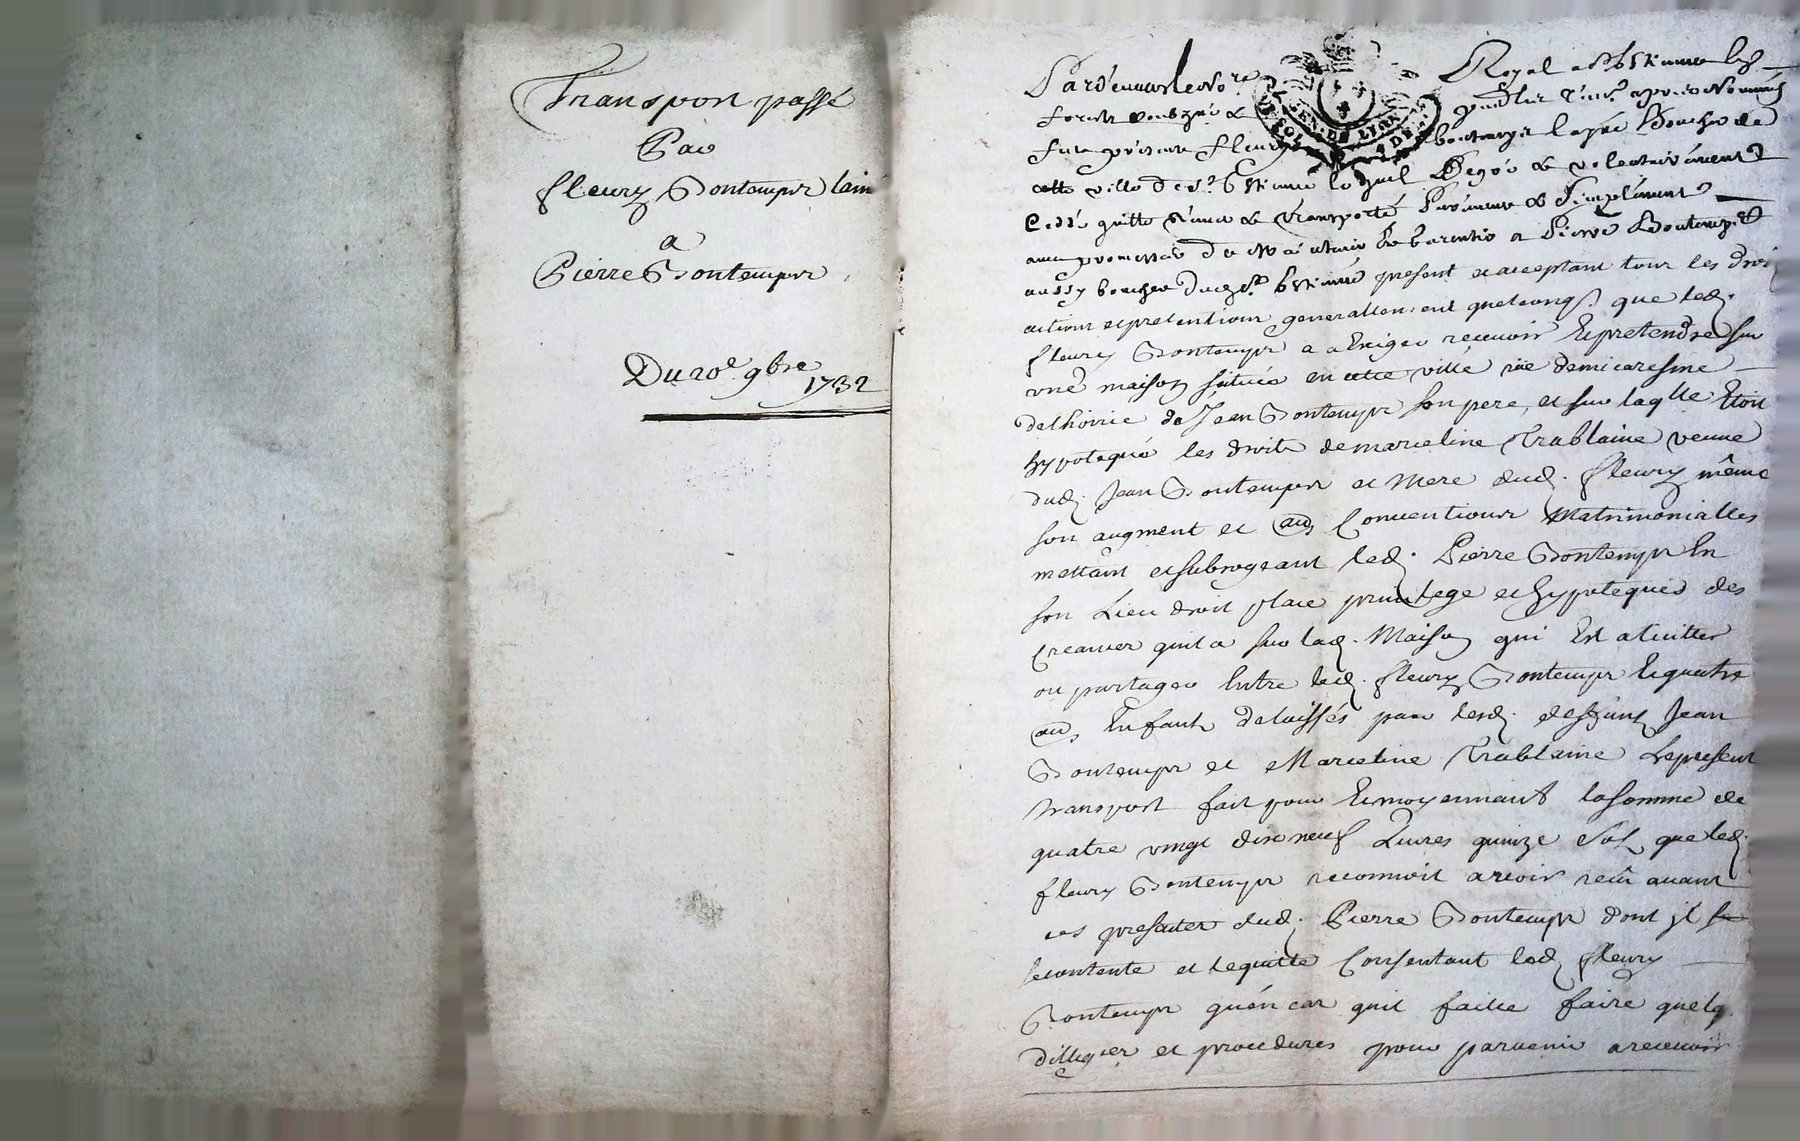 Transport passé
Par
fleury Bontemps laine
a
Pierre Bontemps
Du 20e. 9bre
1732
Pardevant le No.re Royal a St Estienne En
forest soubzné &
fut present fleury Bontemps layné Boucher de
cette ville de St. Estienne lequel De gré & volontairement
Cedde quitte Remet & transporte Purement & simplement
avec promesse de maintenir & garentir a Pierre Bontemps
aussy boucher dud. St. Estienne present et acceptant tous les droits
actions et pretentions generallement quelconq. que led.
fleury Bontemps a a Exiger recevoir Et pretendre sur
une maison scituée en cette ville rüe demicaresme
delhoirie de Jean Bontemps son pere, et sur laqlle Etoit
hypotequé les droits de marceline Trablaine veuve
dud. Jean Bontemps et Mere dud. fleury même
son augment et au Conventions Matrimonialles
mettant et subrogeant led. Pierre Bontemps En
son Lieu droit place privilege et hypoteques des
creances quil a sur lad. Maison qui Est a liciter
ou partager Entre led. fleury Bontemps & quatre
au Enfants delaissés par lesd. deffunts Jean
Bontemps et Marceline Trablaine Le present
transport fait pour Et moyennant la somme de
quatre vingt dix neuf Livres quinze Sols que led.
fleury Bontemps reconnoit avoir reçû avant
ces presentes dud. Pierre Bontemps dont jl
se contente et le quitte Consentant led. fleury
Bontemps quen cas quil faille faire quelq.
dilligces et procedures pour parvenir a recevoir